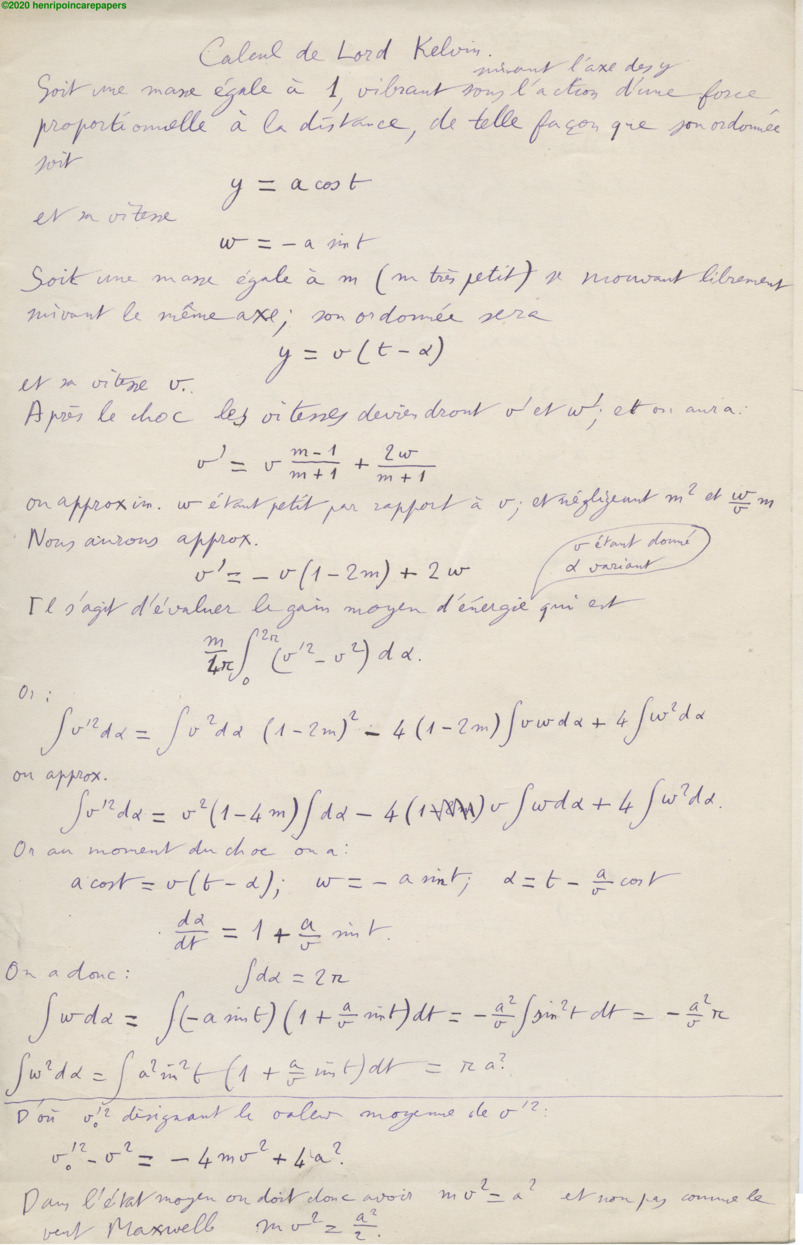 ©2020 henripoincarepapers
Calcul de Lord Kelvin.
suivant l'axe des y
Soit une masse égale à 1, vibrant sous l'action d'une force
proportionnelle à la distance, de telle façon que son ordonnée
soit
y = a cos t
et sa vitesse
w = - a sin t
Soit une masse égale à m (m très petit) se mouvant librement
suivant le même axe; son ordonnée sera
y = v (t - α)
et sa vitesse v.
Après le choc les vitesses deviendront v' et w'; et on aura:
v' = v \frac{m-1}{m+1} + \frac{2w}{m+1}
ou approxim. w étant petit par rapport à v; et négligeant m² et \frac{w}{v} m
Nous aurons approx.
v étant donné
α variant
v' = - v (1-2m) + 2w
Il s'agit d'évaluer le gain moyen d'énergie qui est
\frac{m}{4π} ∫_0^{2π} (v'² - v²) dα.
Or:
∫v'²dα = ∫v²dα (1-2m)² - 4 (1-2m) ∫vwdα + 4 ∫w²dα
ou approx.
∫v'²dα = v² (1-4m) ∫dα - 4 (1 ) v ∫wdα + 4 ∫w²dα.
Or au moment du choc on a:
a cos t = v(t - α); w = - a sin t; α = t - \frac{a}{v} cos t
\frac{dα}{dt} = 1 + \frac{a}{v} sin t.
On a donc: ∫dα = 2π
∫wdα = ∫(-a sin t) (1 + \frac{a}{v} sin t) dt = - \frac{a²}{v} ∫sin² t dt = - \frac{a²}{v} π
∫w²dα = ∫a² sin² t (1 + \frac{a}{v} sin t) dt = π a².
D'où v₀'² désignant la valeur moyenne de v'²:
v₀'² - v² = - 4mv² + 4a².
Dans l'état moyen on doit donc avoir mv² = a² et non pas comme le
veut Maxwell mv² = \frac{a²}{2}.